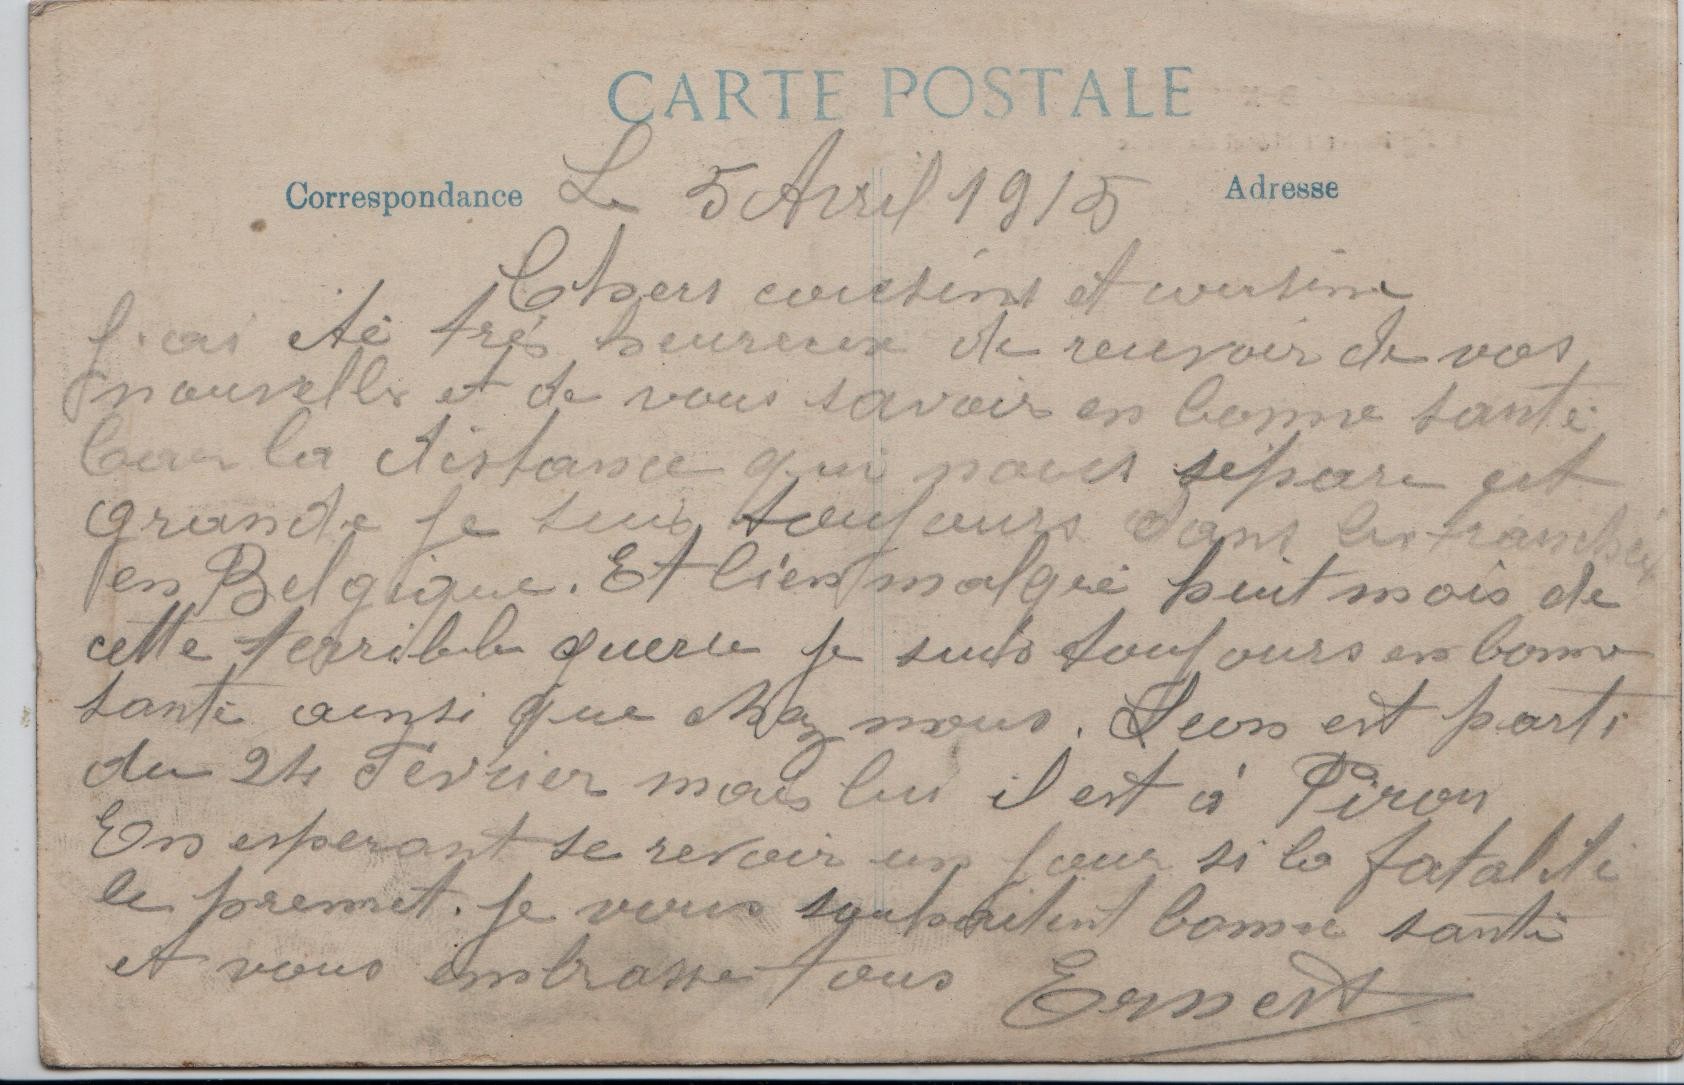 CARTE POSTALE
Correspondance Le 5 Avril 1915 Adresse
Chers cousins et cousine
J'ai été très heureux de recevoir de vos
nouvelles et de vous savoir en bonne santé
Car la distance qui nous sépare est
grande je suis toujours dans les tranchées
en Belgique. Et bien malgré huit mois de
cette terrible guerre je suis toujours en bonne
santé ainsi que chez nous. Leon est parti
du 24 Février mais lui il est à
En esperant se revoir un jour si la fatalité
le premet. je vous souhaitent bonne santé
et vous embrasse tous Ernest